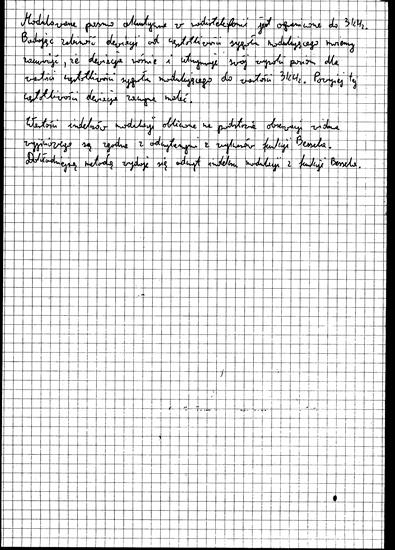 Modulowane pasmo akustyczne w radiotelefonii jest ograniczone do 3kHz.
Badając zależność dewiacji od częstotliwości sygnału modulującego możemy
zauważyć, że dewiacja rośnie i utrzymuje swój wysoki poziom dla
wartości częstotliwości sygnału modulującego do wartości 3kHz. Powyżej tej
częstotliwości dewiacja zaczyna maleć.
Wartości indeksów modulacji obliczone na podstawie obserwacji widma
są zgodne z odczytanymi z wykresów funkcji Bessela.
Dokładniejszą metodą wydaje się odczyt indeksu modulacji z funkcji Bessela.